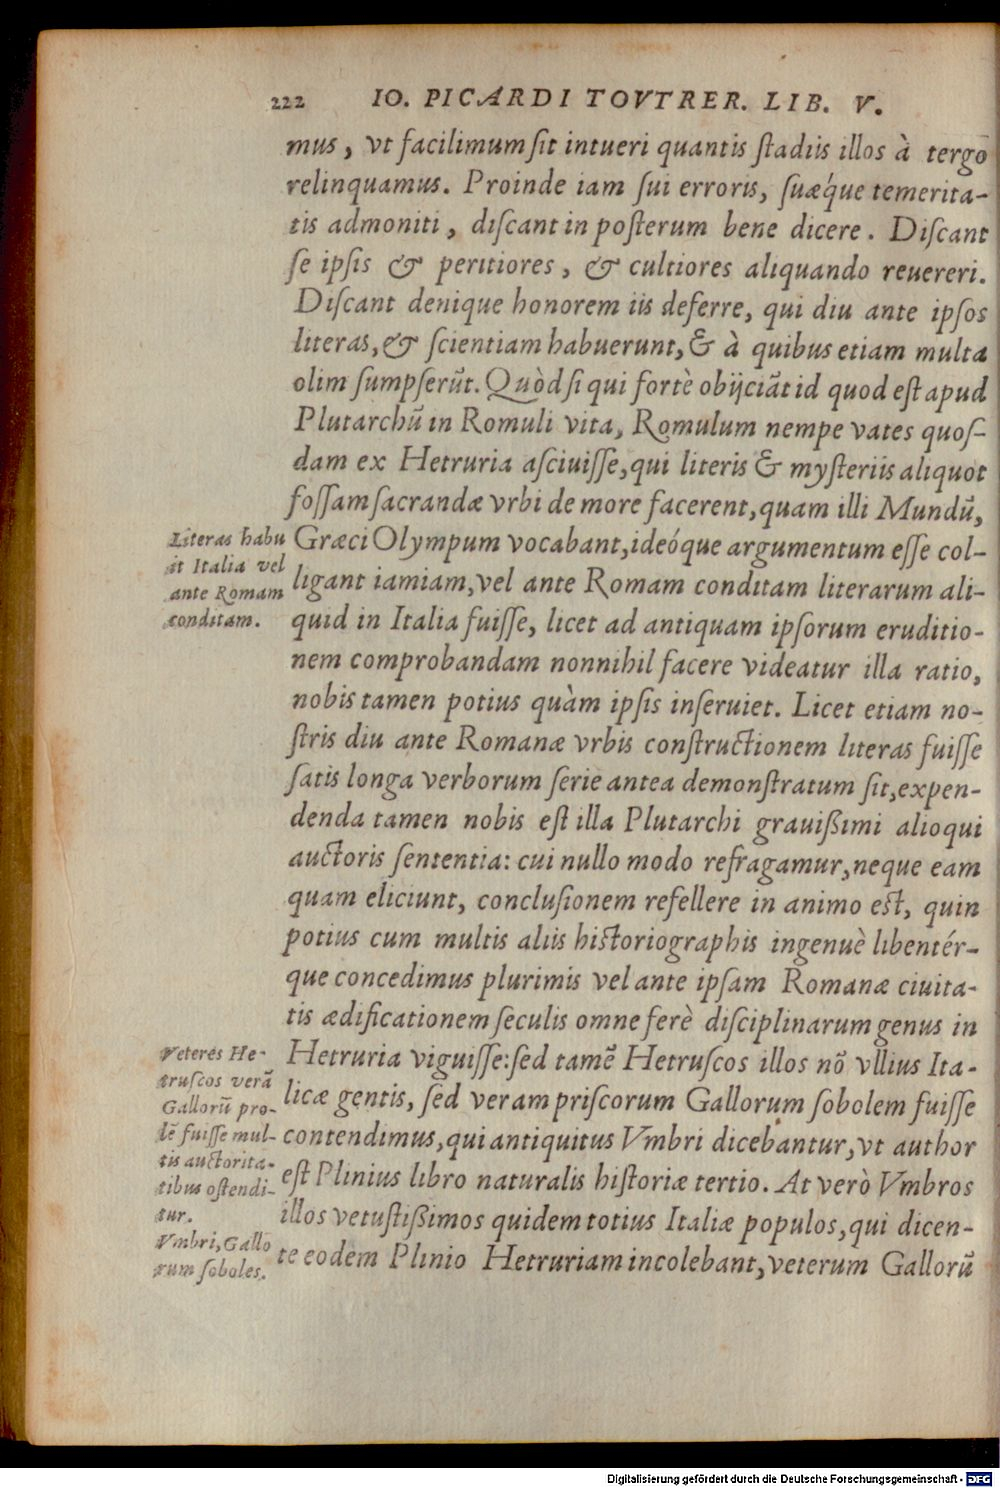 222 IO. PICARDI TOVTRER. LIB. V.
mus, vt facilimum ſit intueri quantis ſtadiis illos à tergo
relinquamus. Proinde iam ſui erroris, ſuæq́ue temerita-
tis admoniti, diſcant in poſterum bene dicere. Diſcant
ſe ipſis & peritiores, & cultiores aliquando reuereri.
Diſcant denique honorem iis deferre, qui diu ante ipſos
literas, & ſcientiam habuerunt, & à quibus etiam multa
olim ſumpſerũt. Quòd ſi qui fortè obijciãt id quod eſt apud
Plutarchũ in Romuli vita, Romulum nempe vates quoſ-
dam ex Hetruria aſciuiſſe, qui literis & myſteriis aliquot
foſſam ſacrandæ vrbi de more facerent, quam illi Mundũ,
Græci Olympum vocabant, ideóque argumentum eſſe col-
ligant iamiam, vel ante Romam conditam literarum ali-
quid in Italia fuiſſe, licet ad antiquam ipſorum eruditio-
nem comprobandam nonnihil facere videatur illa ratio,
nobis tamen potius quàm ipſis inſeruiet. Licet etiam no-
ſtris diu ante Romanæ vrbis conſtructionem literas fuiſſe
ſatis longa verborum ſerie antea demonſtratum ſit, expen-
denda tamen nobis eſt illa Plutarchi grauißimi alioqui
auctoris ſententia: cui nullo modo refragamur, neque eam
quam eliciunt, concluſionem refellere in animo eſt, quin
potius cum multis aliis hiſtoriographis ingenuè libentér-
que concedimus plurimis vel ante ipſam Romanæ ciuita-
tis ædificationem ſeculis omne ferè diſciplinarum genus in
Hetruria viguiſſe: ſed tamẽ Hetruſcos illos nõ vllius Ita-
licæ gentis, ſed veram priſcorum Gallorum ſobolem fuiſſe
contendimus, qui antiquitus Vmbri dicebantur, vt author
eſt Plinius libro naturalis hiſtoriæ tertio. At verò Vmbros
illos vetuſtißimos quidem totius Italiæ populos, qui dicen-
te eodem Plinio Hetruriam incolebant, veterum Gallorũ
Literas habu
ìt Italia vel
ante Romam
conditam.
Veteres He-
truſcos verã
Gallorũ pro-
lẽ fuiſſe mul-
tis auctorita-
tibus oſtendi-
tur.
Vmbri, Gallo
rum ſoboles.
Digitalisierung gefördert durch die Deutsche Forschungsgemeinschaft - DFG